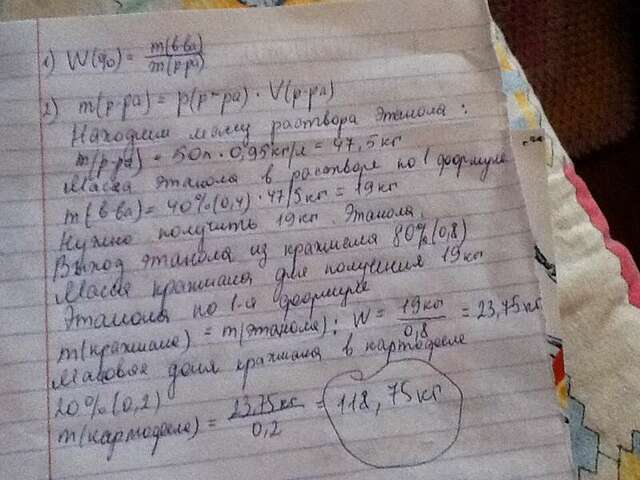 1) W(%) = m(в-ва) / m(р-ра)
2) m(р-ра) = p(р-ра) · V(р-ра)
Находим массу раствора этанола:
m(р-ра) = 50л · 0,95кг/л = 47,5кг
Масса этанола в растворе по 1 формуле
m(в-ва) = 40%(0,4) · 47,5кг = 19кг
Нужно получить 19кг этанола.
Выход этанола из крахмала 80%(0,8)
Масса крахмала для получения 19кг
Этанола по 1-й формуле
m(крахмала) = m(этанола) : W = 19кг / 0,8 = 23,75кг
Массовая доля крахмала в картофеле
20%(0,2)
m(картофеля) = 23,75кг / 0,2 = 118,75кг